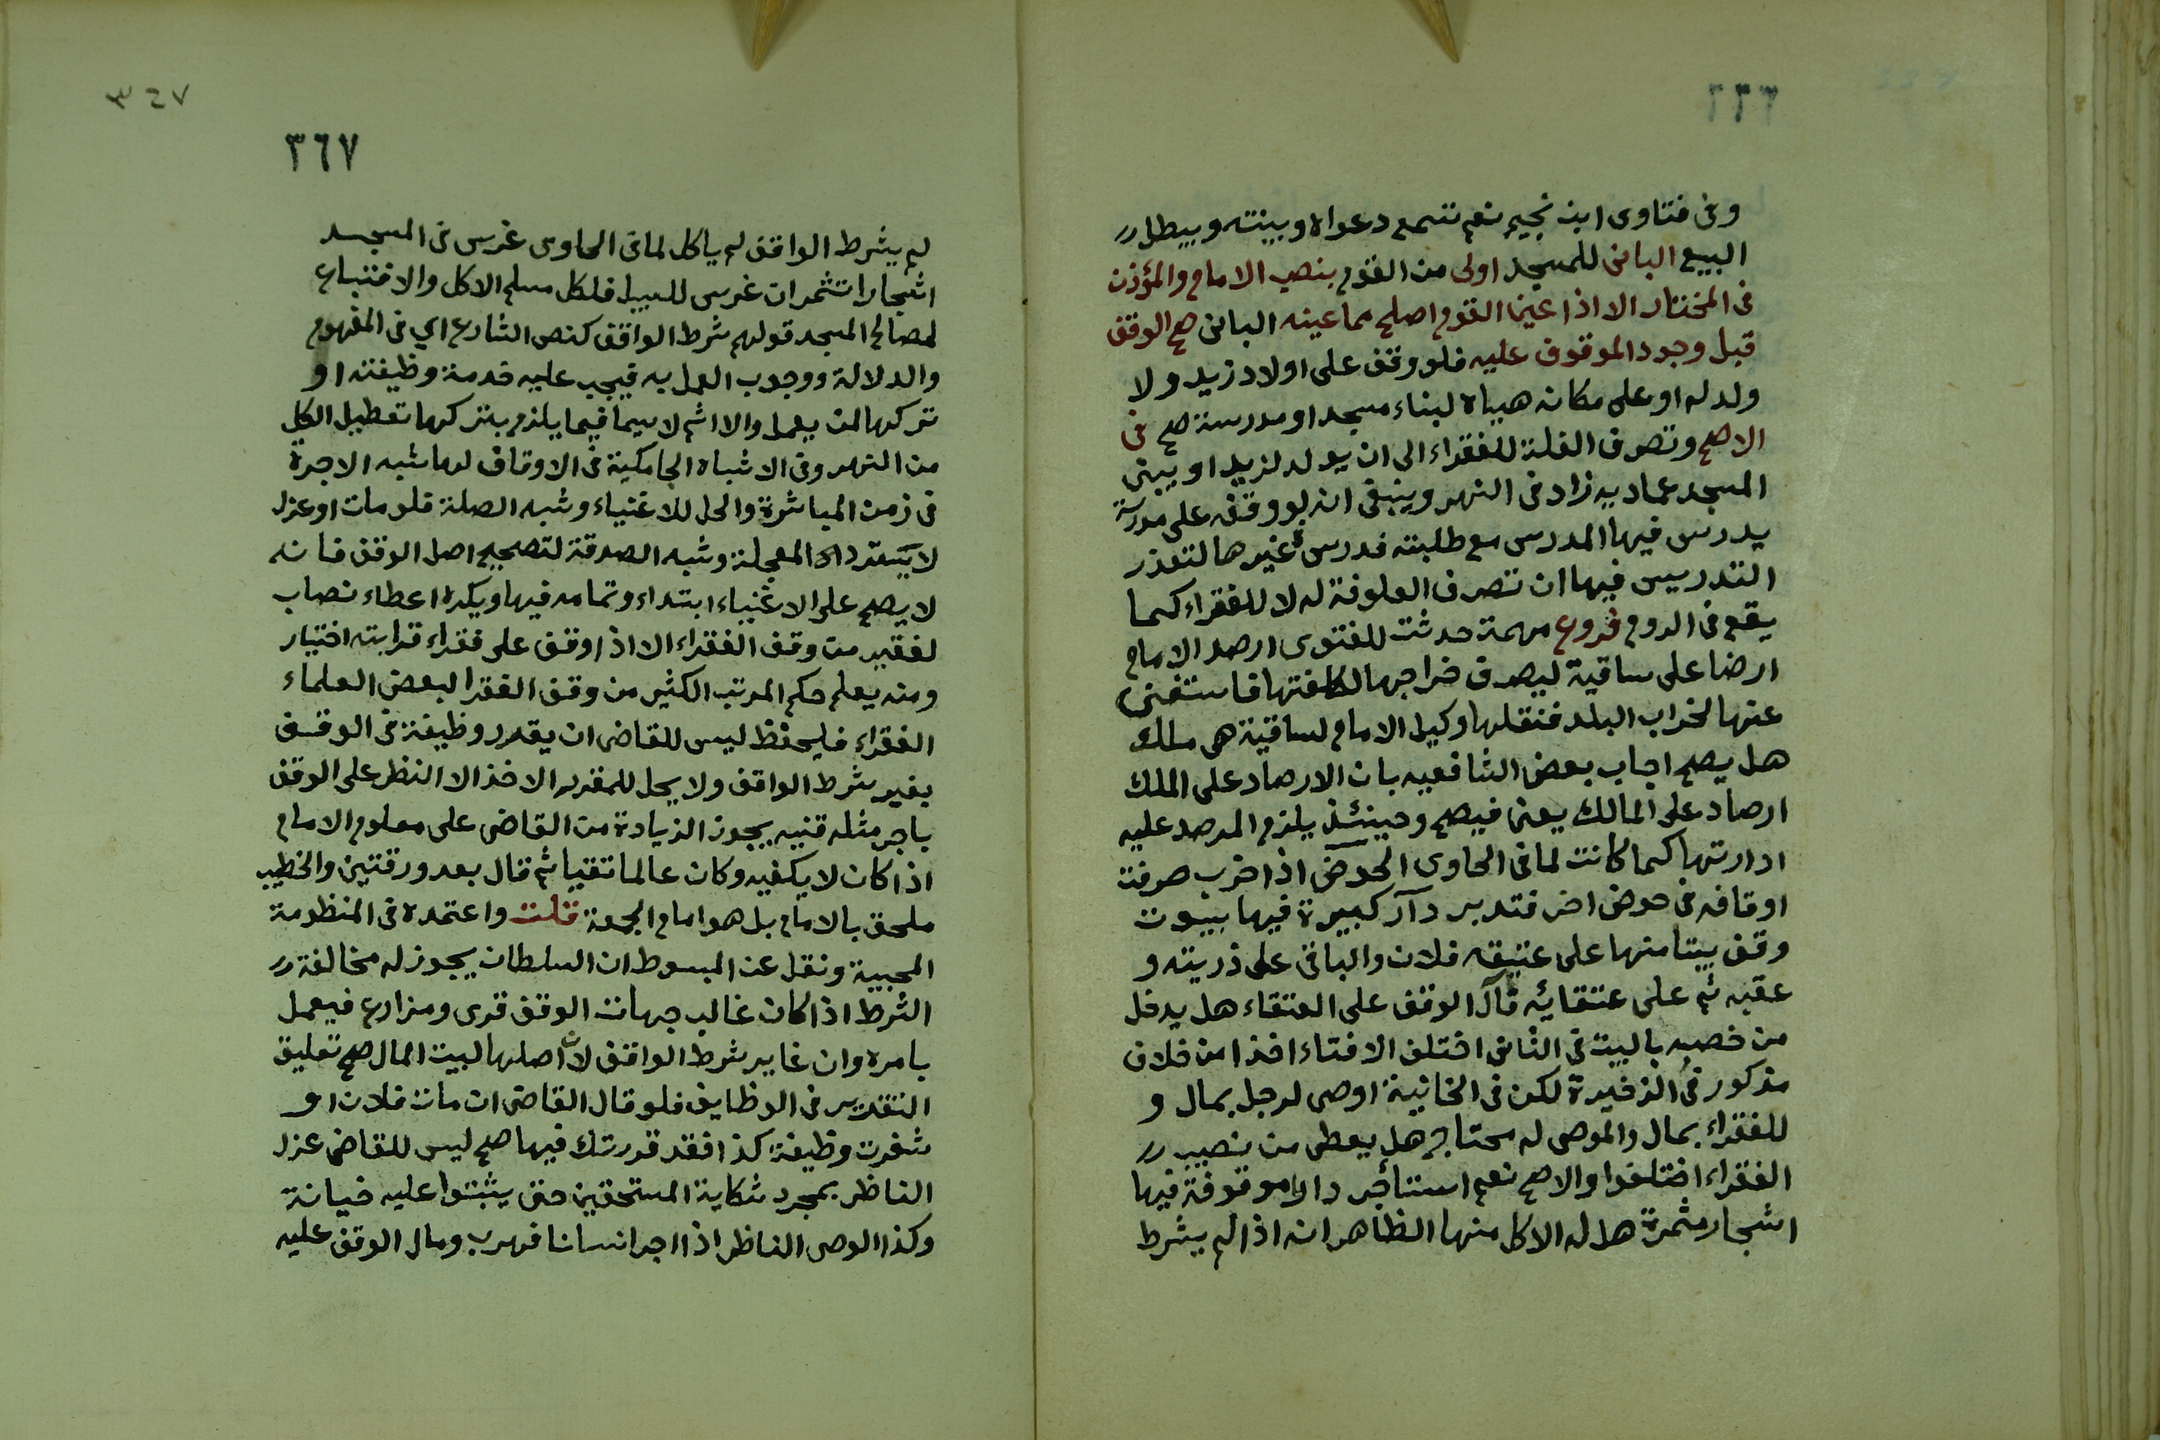 ٣٦٦
وفى فتاوى ابن نجيم نعم تسمع دعواه وبينته ويبطل
البيع البانى للمسجد اولى من القوم بنصب الامام والمؤذن
فى المختار الا اذا عين القوم اصلح مما عينه البانى صح الوقف
قبل وجود الموقوف عليه فلو وقف على اولاد زيد ولا
ولد له او على مكان هيأه لبناء مسجد او مدرسة صح فى
الاصح وتصرف الغلة للفقراء الى ان يولد لزيد او يبنى
المسجد عماديه زاد فى النهر وينبغى انه لو وقف على مدرسة
يدرس فيها المدرس مع طلبته فدرس غيرها لتعذر
التدريس فيها ان تصرف العلوفة له لا للفقراء كما
يقع فى الروم فروع مهمة حدثت للفتوى ارصد الامام
ارضا على ساقية ليصرف خراجها لكلفتها فاستغنى
عنها لخراب البلد فنقلها وكيل الامام لساقية هى ملك
هل يصح اجاب بعض الشافعيه بان الارصاد على الملك
ارصاد على المالك يعنى فيصح وحينئذ يلزم المرصد عليه
ادارتها كما كانت لما فى الحاوى الحوض اذا خرب صرفت
اوقافه فى حوض اخر فتدبر دآر كبيرة فيها بيوت
وقف بيتا منها على عتيقه فلان والباقى على ذريته و
عقبه ثم على عتقائه فآل الوقف على العتقاء هل يدخل
من خصه بالبيت فى الثانى اختلف الافتاء اخذا من خلاف
مذكور فى الذخيرة لكن فى الخانية اوصى لرجل بمال و
للفقراء بمال والموصى له محتاج هل يعطى من نصيب
الفقراء اختلفوا والاصح نعم استأجر دارا موقوفة فيها
اشجار مثمرة هل له الاكل منها الظاهر انه اذا لم يشرط
٣٤٧
٣٦٧
لم يشرط الواقف لم ياكل لما فى الحاوى غرس فى المسجد
اشجارا تثمر ان غرس للسبيل فلكل مسلم الاكل والا فتباع
لمصالح المسجد قولهم شرط الواقف كنص الشارع اى فى المفهوم
والدلالة ووجوب العمل به فيجب عليه خدمة وظيفته او
تركها لمن يعمل والا اثم لا سيما فيما يلزم بتركها تعطيل الكل
من النهر وفى الاشباه الجامكية فى الاوقاف لها شبه الاجرة
فى زمن المباشرة والحل للاغنياء وشبه الصلة فلو مات او عزل
لا يسترد المعجلة وشبه الصدقة لتصحيح اصل الوقف فانه
لا يصح على الاغنياء ابتداء وتمامه فيها ويكره اعطاء نصاب
لفقير من وقف الفقراء الا اذا وقف على فقراء قرابته اختيار
ومنه يعلم حكم المرتب الكثير من وقف الفقرا لبعض العلماء
الفقراء فليحفظ ليس للقاضى ان يقرر وظيفة فى الوقف
بغير شرط الواقف ولا يحل للمقرر الاخذ الا النظر على الوقف
باجر مثله قنيه يجوز الزيادة من القاضى على معلوم الامام
اذا كان لا يكفيه وكان عالما تقيا ثم قال بعد ورقتين والخطيب
ملحق بالامام بل هو امام الجمعة قلت واعتمده فى المنظومة
المحبية ونقل عن المبسوط ان السلطان يجوز له مخالفة
الشرط اذا كان غالب جهات الوقف قرى ومزارع فيعمل
بامره وان غاير شرط الواقف لان اصلها لبيت المال صح تعليق
التقدير فى الوظايف فلو قال القاضى ان مات فلان او
شغرت وظيفة كذا فقد قررتك فيها صح ليس للقاضى عزل
الناظر بمجرد شكاية المستحقين حتى يثبتوا عليه خيانة
وكذا الوصى الناظر اذا اجر انسانا فهرب ومال الوقف عليه